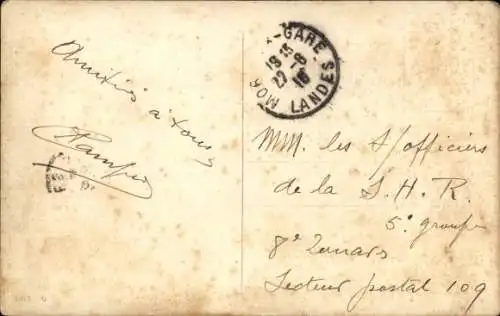 Amitiés à tous
MORCENX-GARE
19 15
22-8
16
LANDES
MM. les S/officiers
de la S. H. R.
5e groupe
8e Zouaves
Secteur postal 109